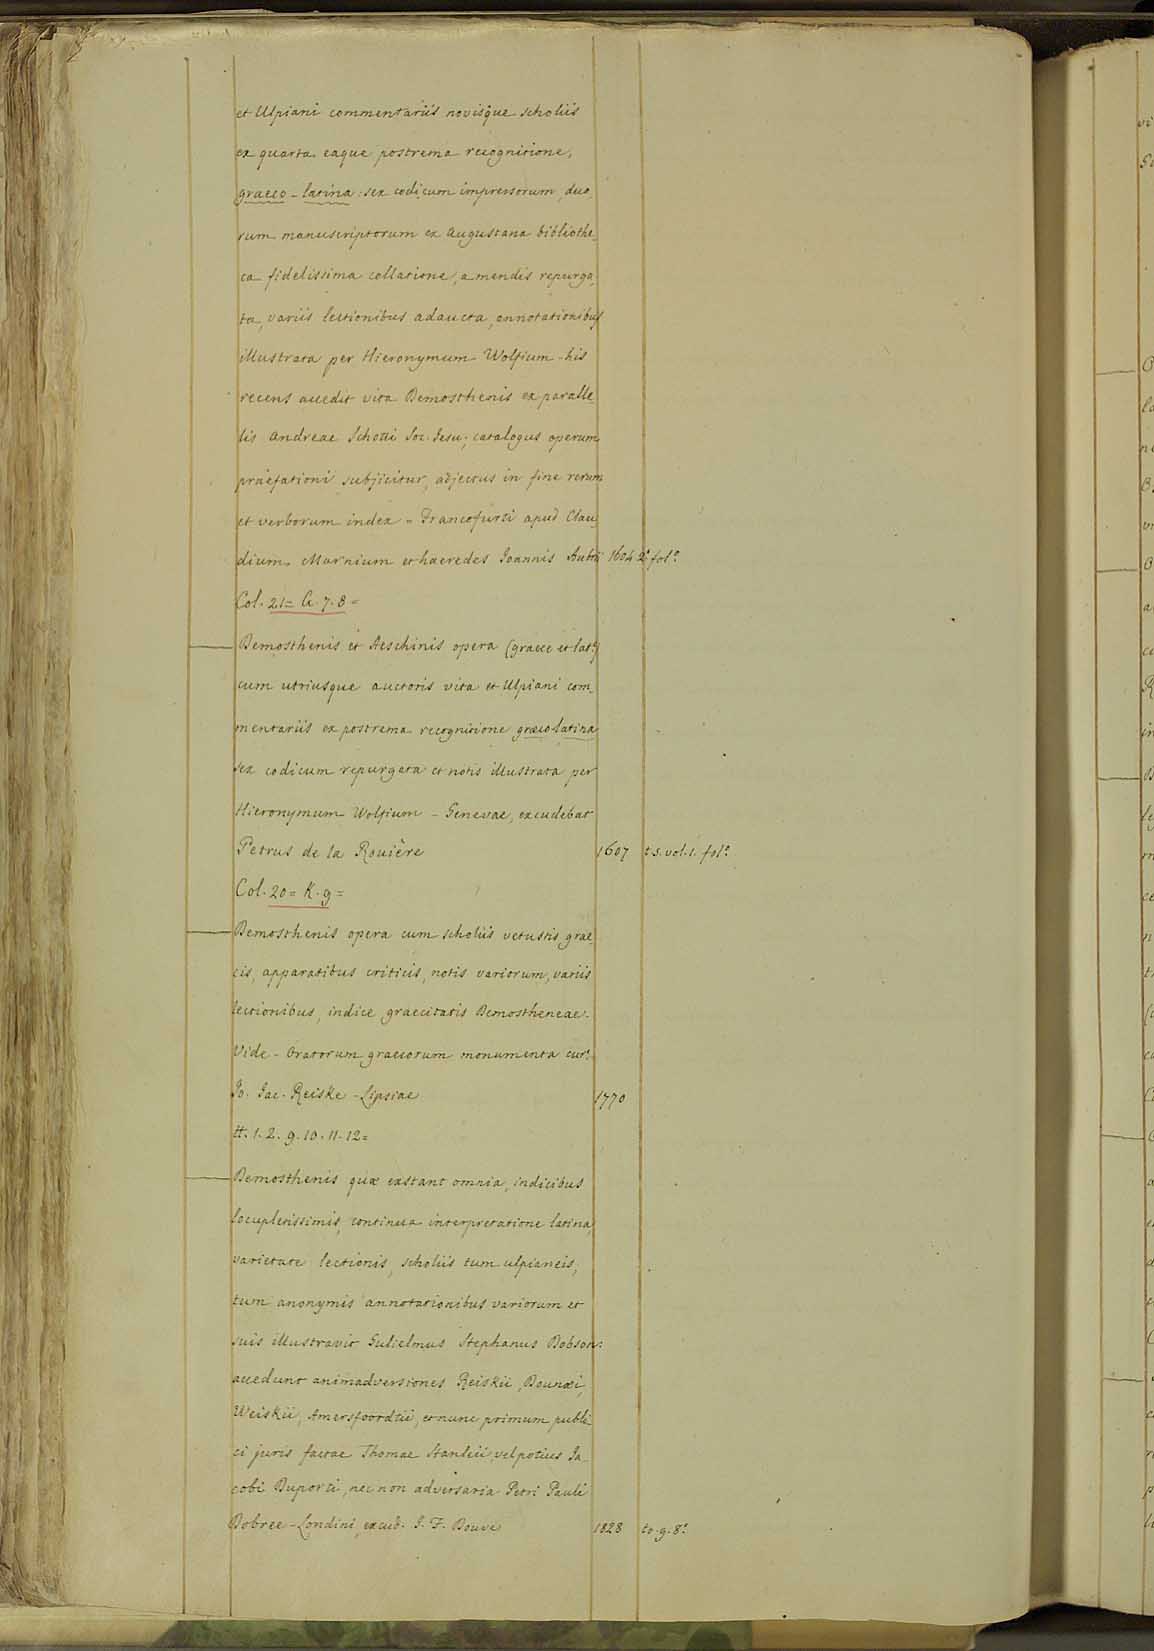 et Ulpiani commentariis novisque scholiis
ex quarta eaque postrema recognitione,
graeco-latina: sex codicum impressorum, duo,
rum manuscriptorum ex Augustana bibliothe,
ca fidelissima collatione, a mendis repurga,
ta, variis lectionibus adaucta, annotationibus
illustrata per Hieronymum Wolfium - his
recens accedit vita Demosthenis ex paralle
lis Andreae Schotti Soc. Jesu; catalogus operum
praefationi subjicitur, adjectus in fine rerum
et verborum index = Francofurti apud Clau,
dium Marnium et haeredes Joannis Aubrii 1604 2° fol°
Col. 21= G. 7. 8 =
Demosthenis et Aeschinis opera (graece et lat°)
cum utriusque auctoris vita et Ulpiani com,
mentariis ex postrema recognitione graecolatina
sex codicum repurgata et notis illustrata per
Hieronymum Wolfium - Genevae, excudebat
Petrus de la Rouière 1607 t.5. vol. 1. fol°
Col. 20 = K. 9 =
Demosthenis opera cum scholiis vetustis grae,
cis, apparatibus criticis, notis variorum, variis
lectionibus, indice graecitatis Demostheneae.
Vide - Oratorum graecorum monumenta cur°
Jo. Jac. Reiske - Lipsiae 1770
tt. 1. 2. 9. 10. 11. 12 =
Demosthenis quæ exstant omnia, indicibus
locupletissimis, continua interpretatione latina,
varietate lectionis, scholiis tum ulpianeis,
tum anonymis annotationibus variorum et
suis illustravit Gulielmus Stephanus Dobson:
accedunt animadversiones Reiskii, Dounæi,
Weiskii, Amersfoordtii, et nunc primum publi
ci juris factae Thomae Stanleii vel potius Ja
cobi Duporti, nec non adversaria Petri Pauli
Dobree - Londini, excud. J. F. Dove 1828 to. 9. 8°